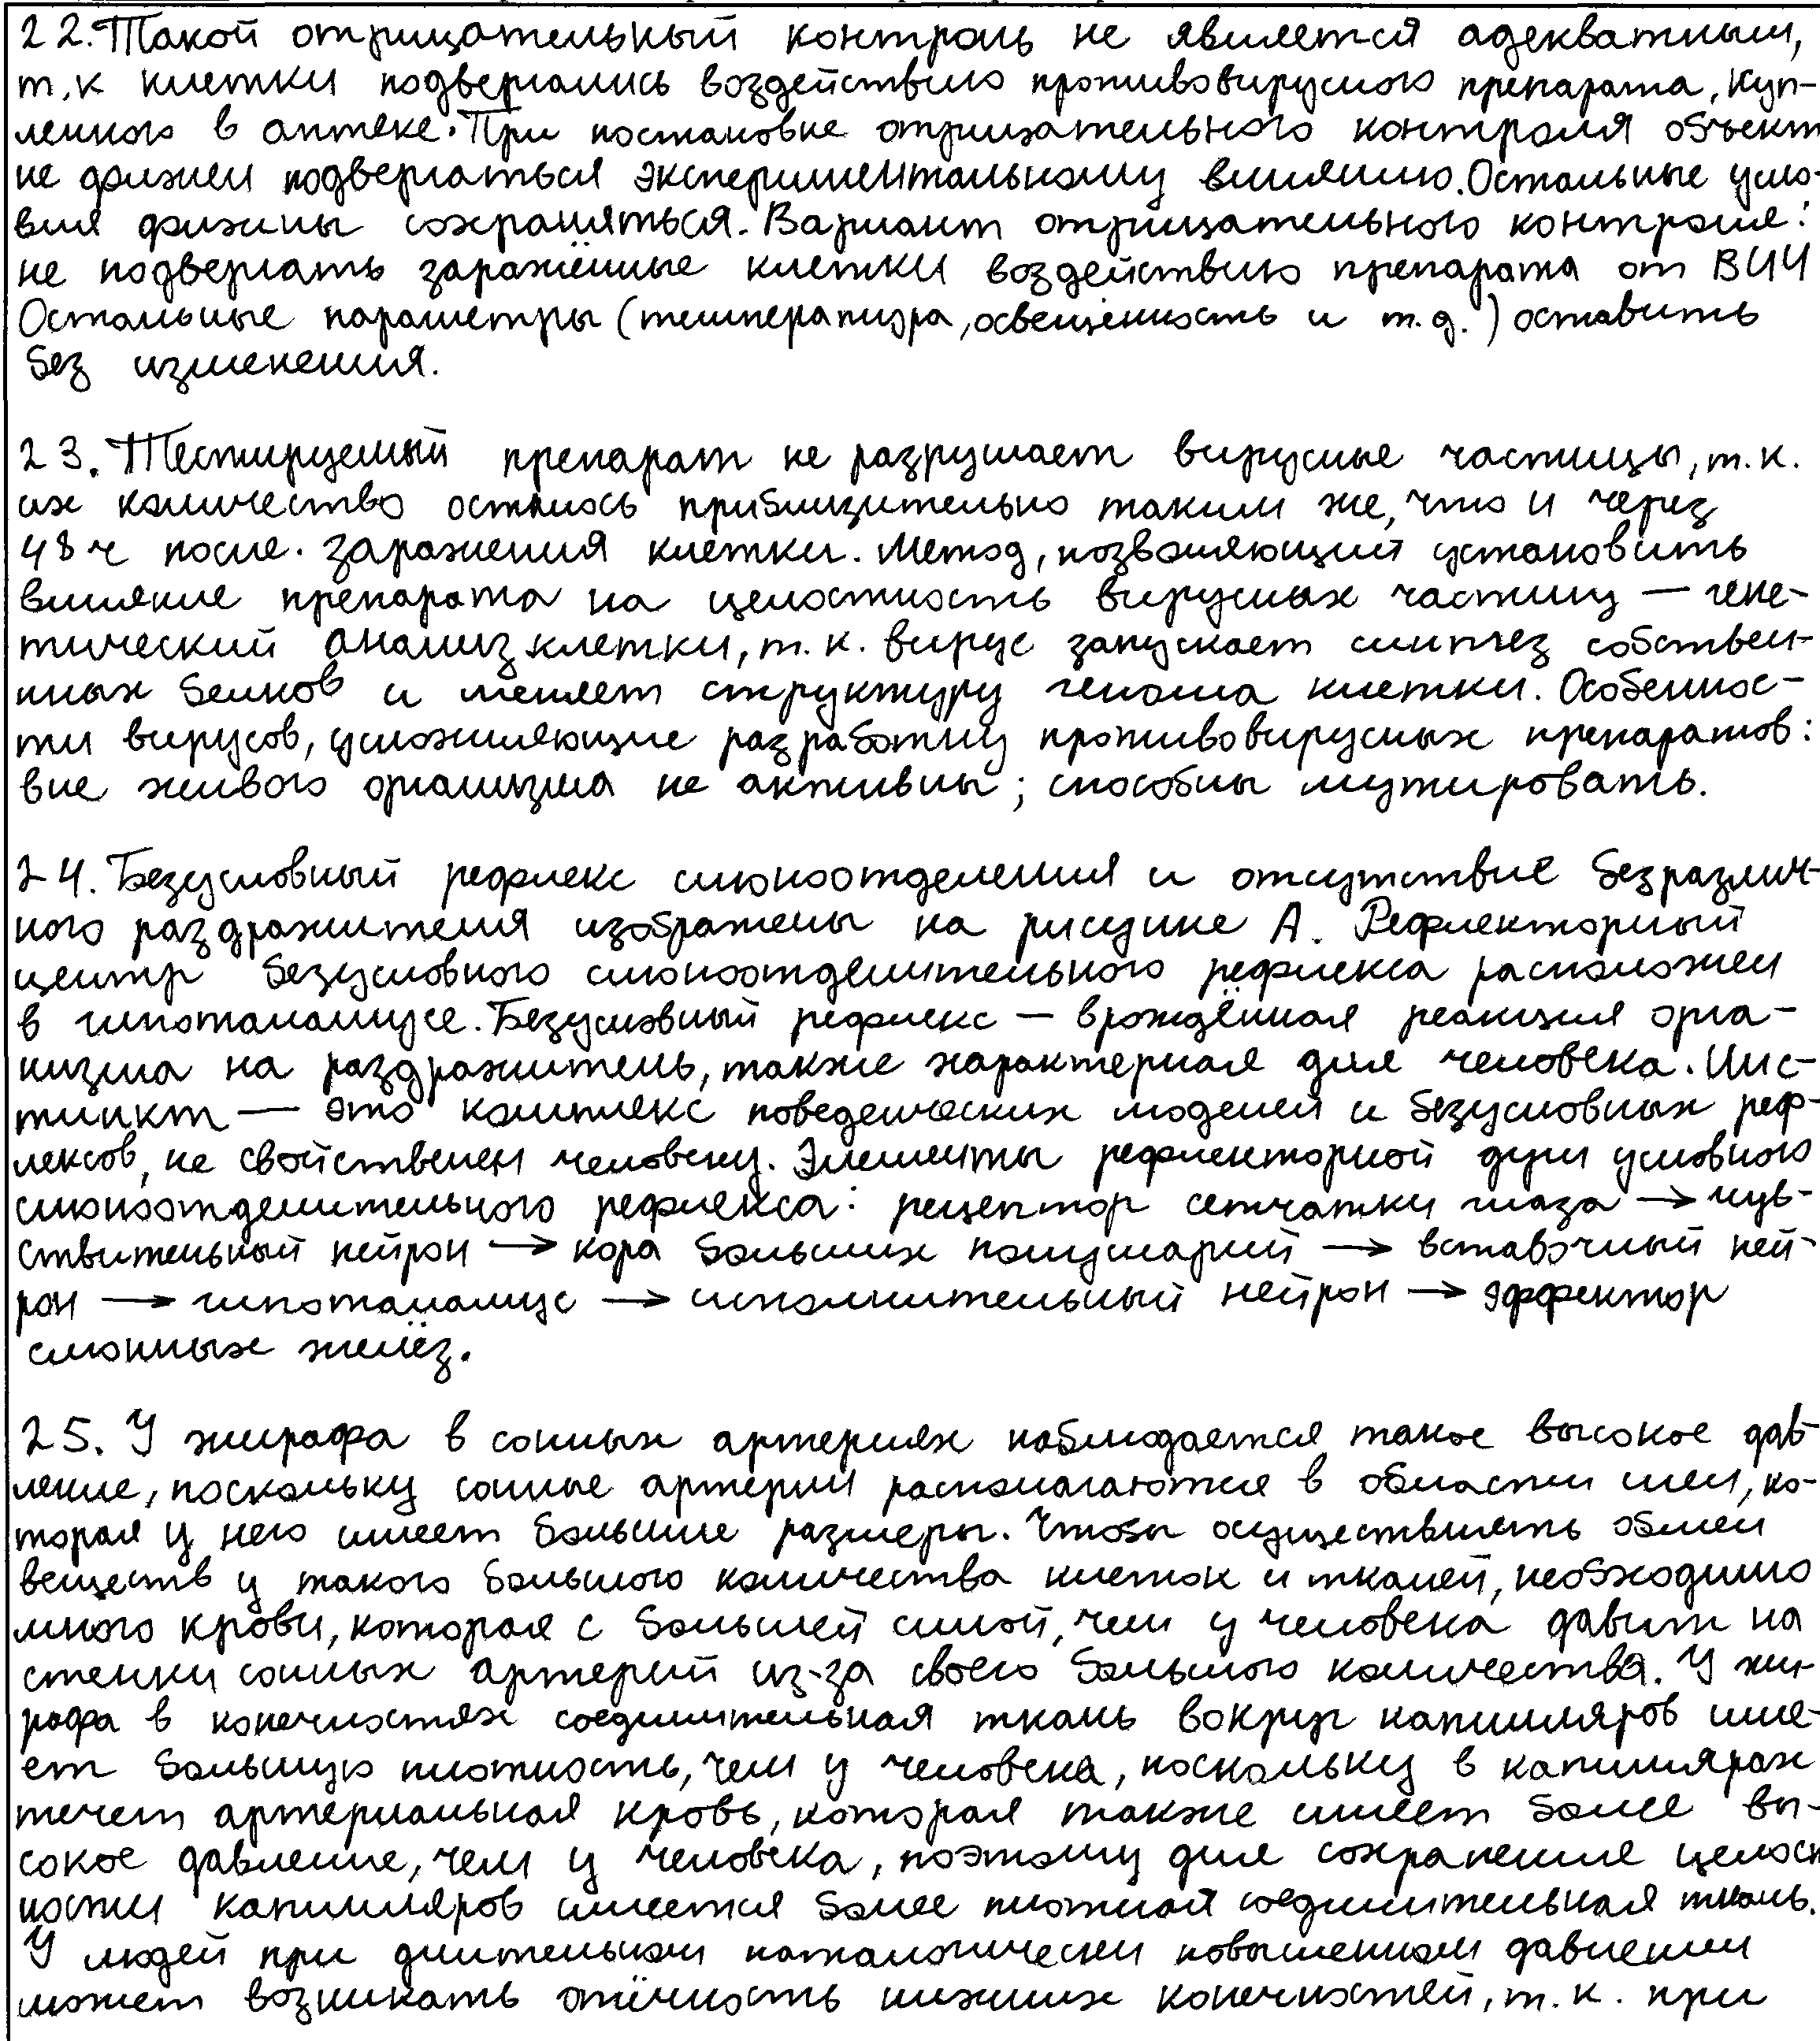 22. Такой отрицательный контроль не является адекватным,
т.к клетки подвергались воздействию противовирусного препарата, куп-
ленного в аптеке. При постановке отрицательного контроля объект
не должен подвергаться экспериментальному влиянию. Остальные усло-
вия должны сохраняться. Вариант отрицательного контроля:
не подвергать заражённые клетки воздействию препарата от ВИЧ
Остальные параметры (температура, освещенность и т.д.) оставить
без изменения.
23. Тестируемый препарат не разрушает вирусные частицы, т.к.
их количество осталось приблизительно таким же, что и через
48ч после. заражения клетки. Метод, позволяющий установить
влияние препарата на целостность вирусных частиц — гене-
тический анализ клетки, т.к. вирус запускает синтез собствен-
ных белков и меняет структуру генома клетки. Особеннос-
ти вирусов, усложняющие разработку противовирусных препаратов:
вне живого организма не активны; способны мутировать.
24. Безусловный рефлекс слюноотделения и отсутствие безразлич-
ного раздражителя изображены на рисунке А. Рефлекторный
центр безусловного слюноотделительного рефлекса расположен
в гипоталамусе. Безусловный рефлекс — врождённая реакция орга-
низма на раздражитель, также характерная для человека. Инс-
тинкт — это комплекс поведенческих моделей и безусловных реф-
лексов, не свойственен человеку. Элементы рефлекторной дуги условного
слюноотделительного рефлекса: рецептор сетчатки глаза → чув-
ствительный нейрон → кора больших полушарий → вставочный ней-
рон → гипоталамус → исполнительный нейрон → эффектор
слюнных желёз.
25. У жирафа в сонных артериях наблюдается такое высокое дав
ление, поскольку сонные артерии располагаются в области шеи, ко-
торая у него имеет большие размеры. Чтобы осуществлять обмен
веществ у такого большого количества клеток и тканей, необходимо
много крови, которая с большей силой, чем у человека давит на
стенки сонных артерий из-за своего большого количества. У жи-
рафа в конечностях соединительная ткань вокруг капилляров име-
ет большую плотность, чем у человека, поскольку в капиллярах
течет артериальная кровь, которая также имеет более вы-
сокое давление, чем у человека, поэтому для сохранение целост
ности капилляров имеется более плотная соединительная ткань.
У людей при длительном патологически повышенном давлении
может возникать отёчность нижних конечностей, т.к. при